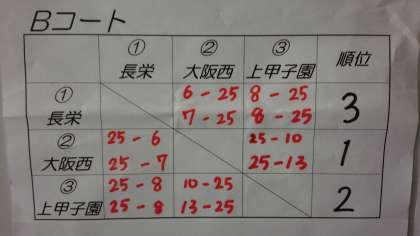 Bコート
① ② ③ 順位
長栄 大阪西 上甲子園
① 6-25 8-25 3
長栄 7-25 8-25
② 25-6 25-10 1
大阪西 25-7 25-13
③ 25-8 10-25 2
上甲子園 25-8 13-25